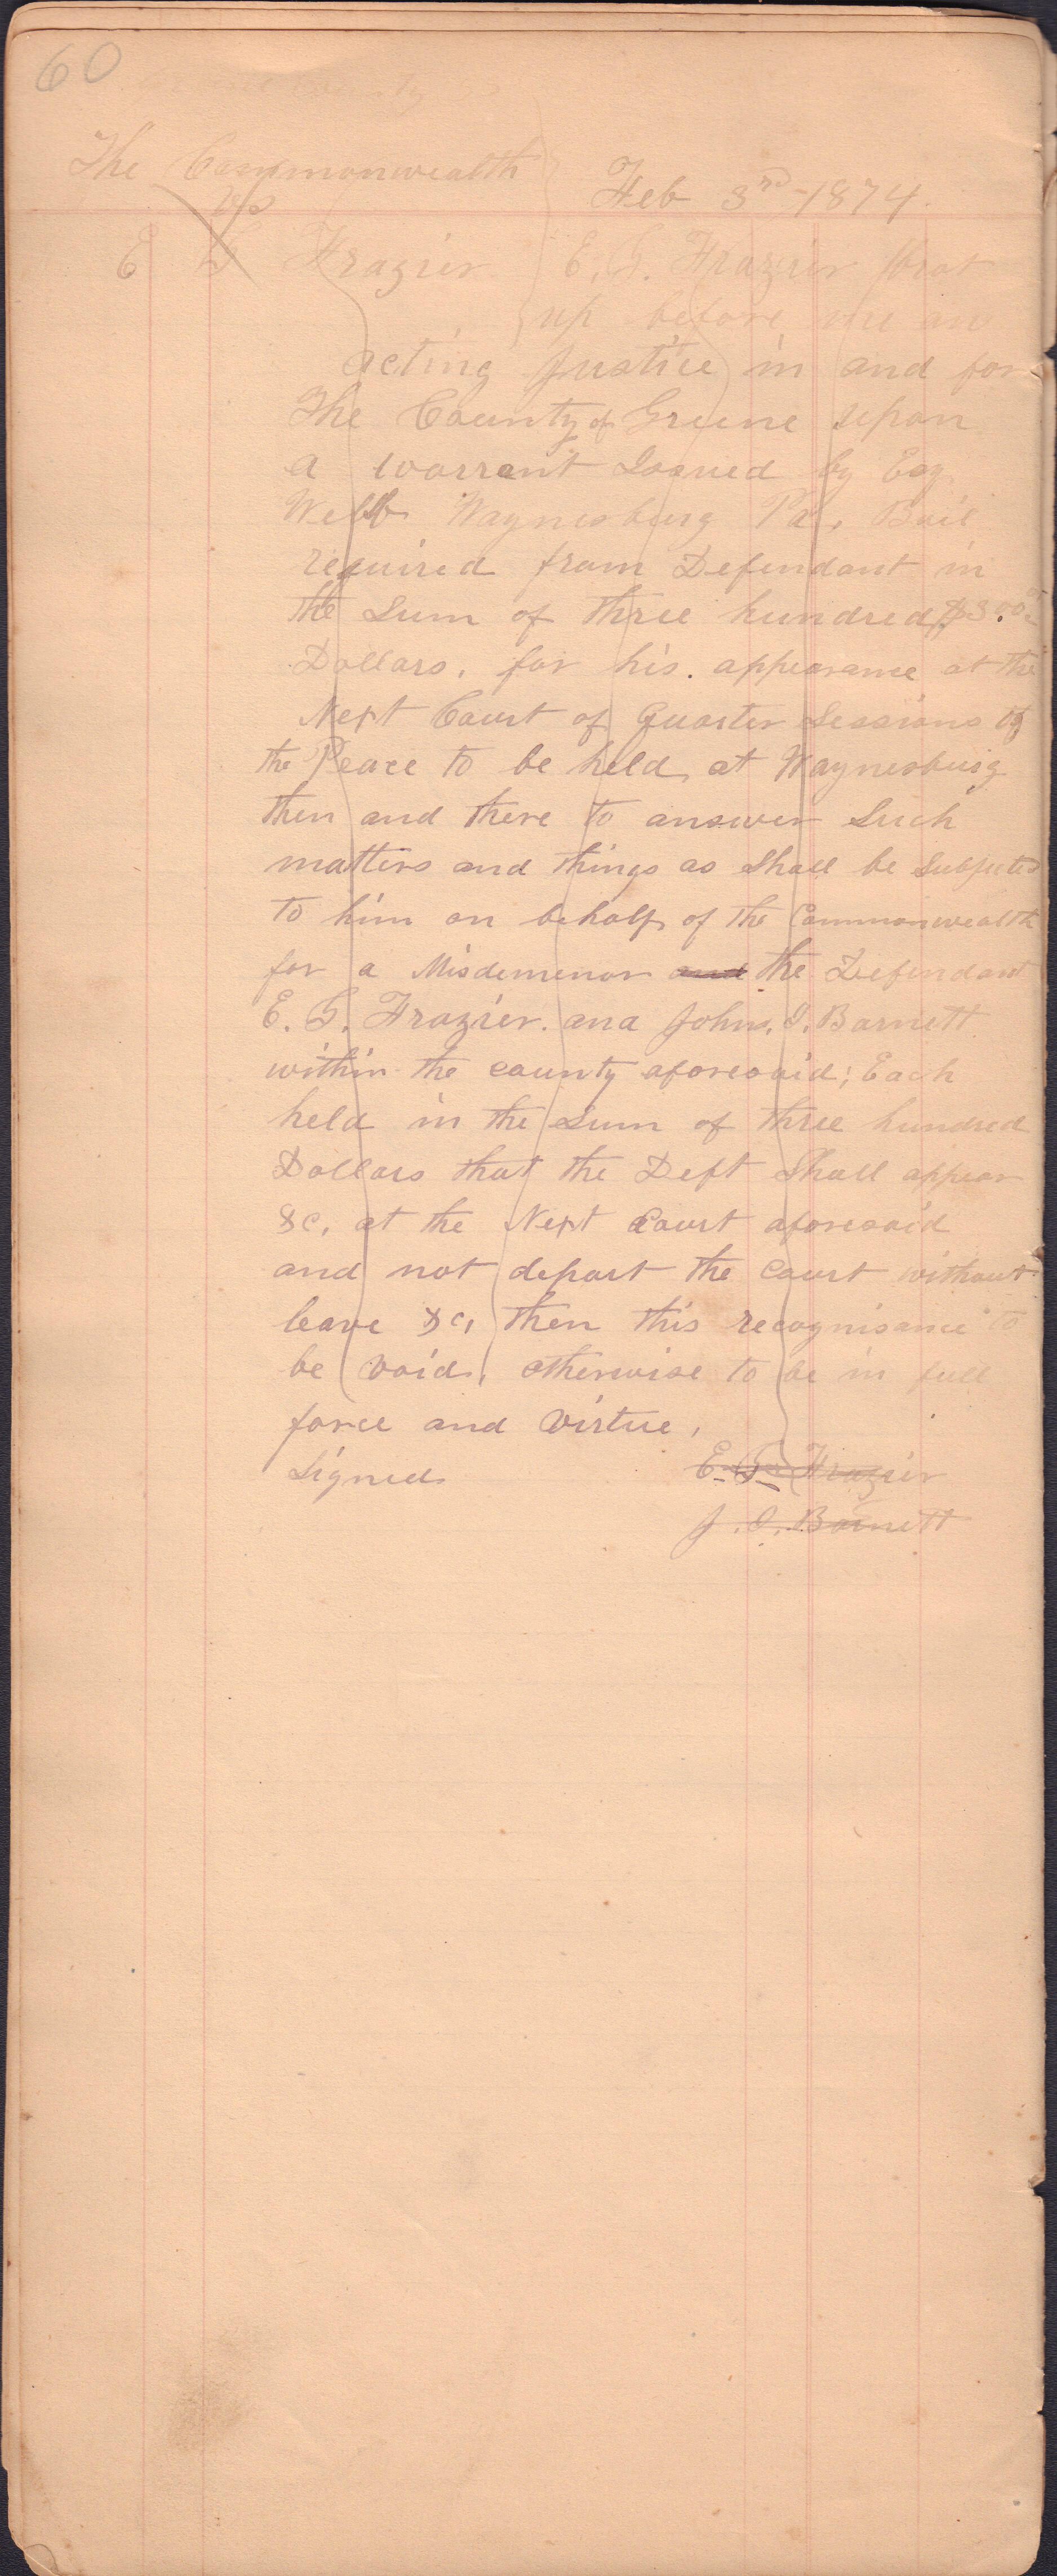 60
Greene County
The Commonwealth
vs
Feb 3rd 1874.
E G Frazier
E. G. Frazier brot
up before me an
acting Justice in and for
The County of Greene upon
a warrant Issued by Esq
Webb Waynesburg Pa, Bail
required from Defendant in
the Sum of three hundred
Dollars, for his. appearance at the
Next Court of Quarter Sessions of
the Peace to be held, at Waynesburg
then and there to answer Such
matters and things as Shall be Subjected
to him on behalf of the Commonwealth
for a Misdemenor and the Defendant
E. G. Frazier. and John. I. Barnett
within the county aforesaid; Each
held in the Sum of three hundred
Dollars that the Deft Shall appear
&c, at the Next Court aforesaid
and not depart the Court without
leave &c, then this recognisance to
be void, otherwise to be in full
force and virtue,
Signed
E. G. Frazier
J. I. Barnett